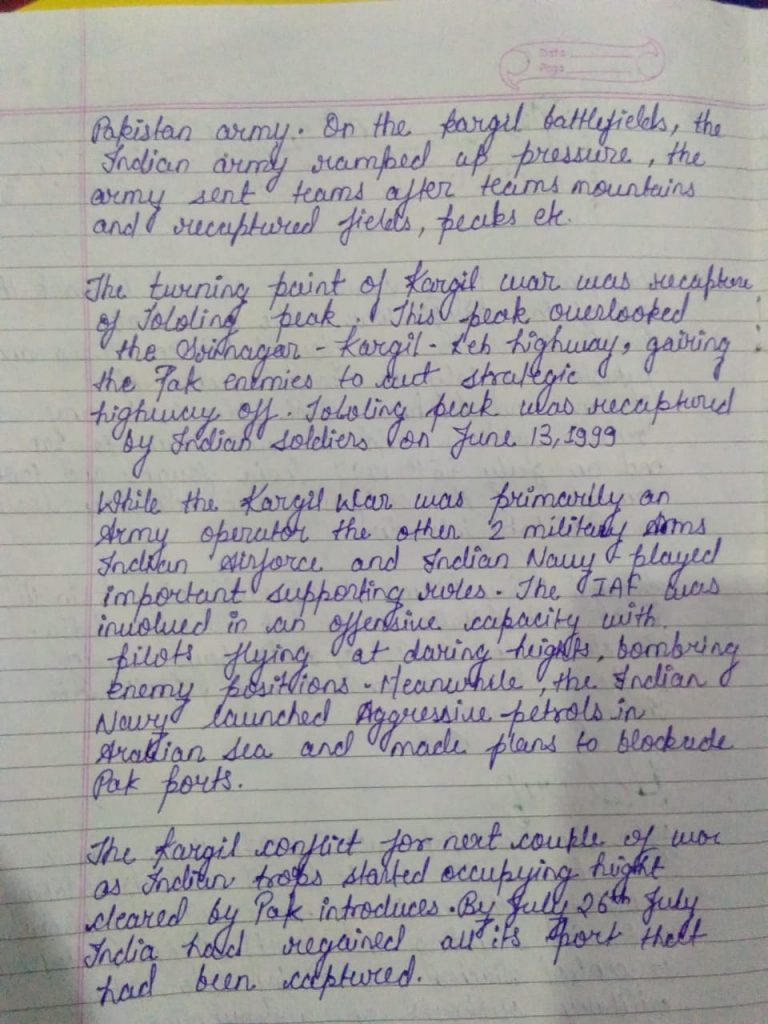 Date
Page
Pakistan army. On the kargil battlefields, the
Indian army ramped up pressure, the
army sent teams after teams mountains
and recaptured fields, peaks etc.
The turning point of Kargil war was recapture
of Tololing peak. This peak overlooked
the Srinagar - Kargil - Leh highway, gaining
the Pak enemies to cut strategic
highway off. Tololing peak was recaptured
by Indian soldiers on June 13, 1999
While the Kargil War was primarily an
Army operator the other 2 military Arms
Indian Airforce and Indian Navy played
important supporting roles. The IAF was
involved in an offensive capacity with
pilots flying at daring heights, bombring
enemy positions. Meanwhile, the Indian
Navy launched Aggressive petrols in
Arabian Sea and made plans to blockade
Pak ports.
The Kargil conflict for next couple of
as Indian trops started occupying hight
cleared by Pak introduces. By July 26th July
India had regained all its port that
had been captured.